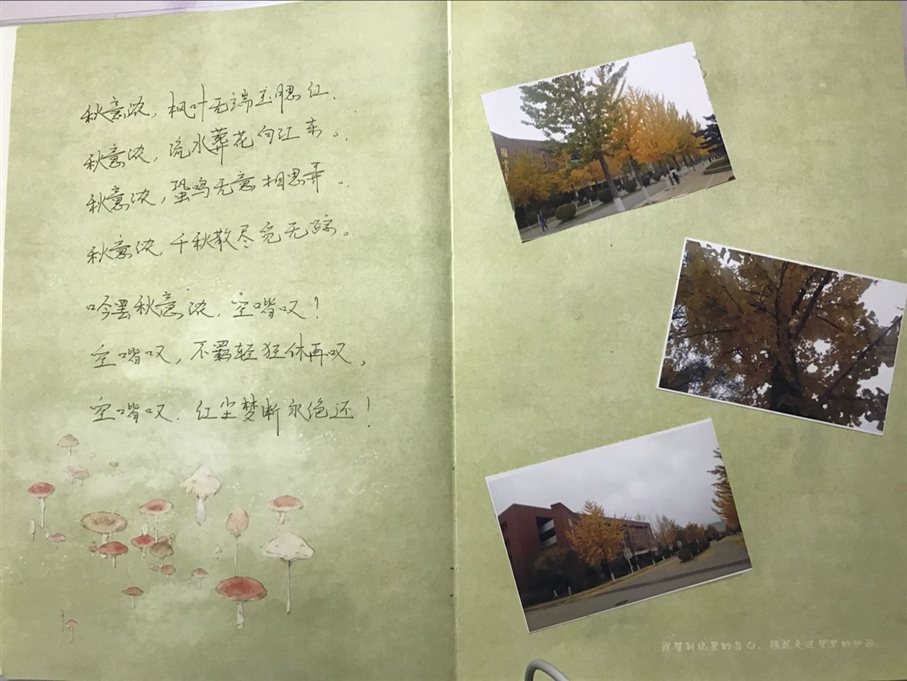 秋意浓，枫叶无端玉腮红．
秋意浓，流水葬花向江东。
秋意浓，蛩鸣无意相思弄。
秋意浓，千秋散尽竟无踪。
吟罢秋意浓，空嗟叹！
空嗟叹，不羁轻狂休再叹，
空嗟叹．红尘梦断永绝还！